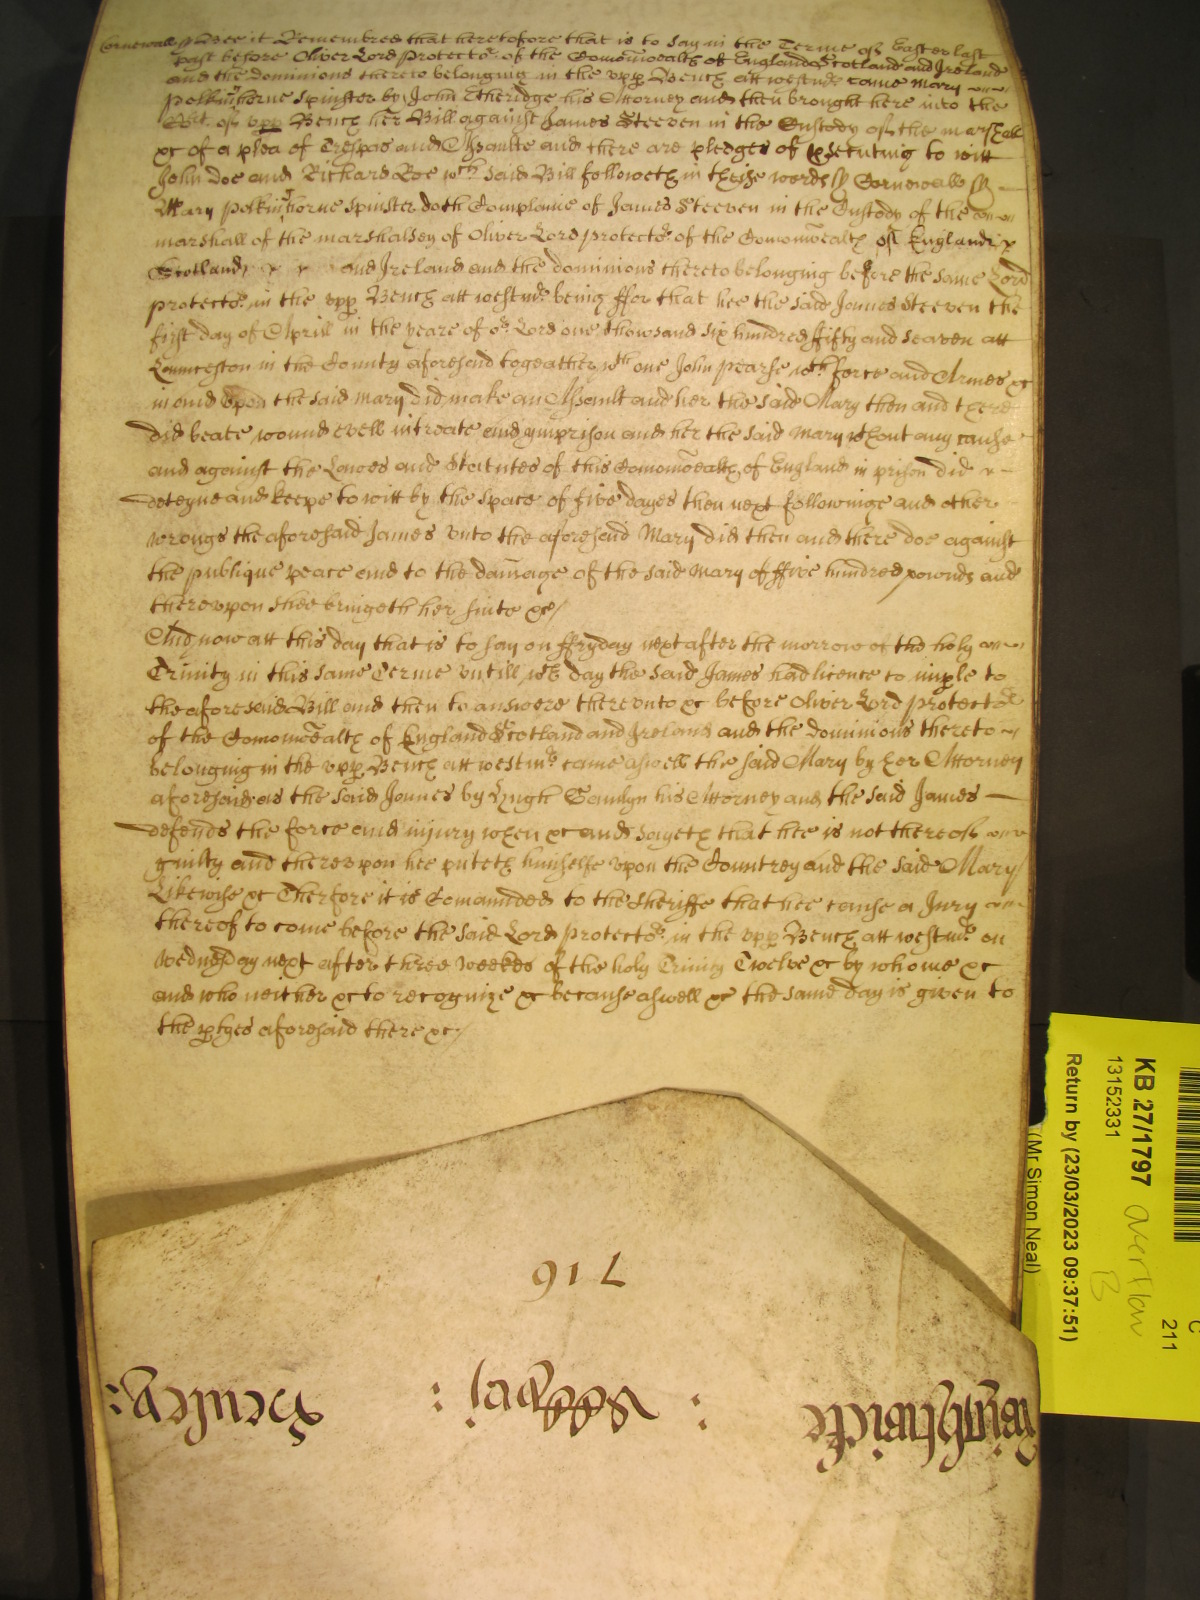 Cornewall ss Bee it Remembred that heretofore that is to say in the Terme of Easter last
past before Oliver Lord Protector of the Comonwealth of England Scotland and Ireland
and the dominions thereto belonging in the upp Bench att westmr came Mary
Polkinhorne Spinster by John Etheridge his Attorney and then brought here into the
upp Bench her Bill against James Steeven in the Custody of the marshall
&c of a plea of Trespas and Assaulte and there are pledges of psecuting to witt
John Doe and Richard Roe wch said Bill followeth in theise words ss Cornewall ss
Mary Polkinhorne spinster doth Complaine of James Steeven in the Custody of the
marshall of the marshalsey of Oliver Lord protector of the Comonwealth of England
Scotland and Ireland and the dominions thereto belonging before the same Lord
protector in the upp Bench att westmr being ffor that hee the said James Steeven the
first day of Aprill in the yeare of or Lord one thowsand six hundred fifty and seaven att
Launceston in the County aforesaid togeather wth one John Pearse wth force and Armes &c
in and upon the said Mary did make an Assault and her the said Mary then and there
did beate, wound evell intreate and ymprison and her the said Mary wthout any cause
and against the Lawes and Statutes of this Comonwealth of England in prison did
deteyne and keepe to witt by the space of five dayes then next followinge and other
wrongs the aforesaid James unto the aforesaid Mary did then and there doe against
the publique peace and to the damage of the said Mary of ffive hundred pownds and
thereupon shee bringeth her suite &c/
And now att this day that is to say on ffryday next after the morrow of the holy
Trinity in this same Terme untill wch day the said James had licence to imple to
the aforesaid Bill and then to answere thereunto &c before Oliver Lord protector
of the Comonwealth of England Scotland and Ireland and the dominions thereto
belonging in the upp Bench att westmr came aswell the said Mary by her Attorney
aforesaid as the said James by Hugh his Attorney and the said James
defends the force and injury when &c and sayeth that hee is not thereof
guilty and thereupon hee puteth himselfe upon the Countrey and the said Mary
Likewise &c Therfore it is Comanded to the Sheriffe that hee cause a Jury
thereof to come before the said Lord protector in the upp Bench att westmr on
wednesday next after three weekes of the holy Trinity Twelve &c by whome &c
and who neither &c to recognize &c because aswell &c the same day is given to
the ptyes aforesaid there &c/
716
KB 27/1797
13152331
Return by (23/03/2023 09:37:51)
(Mr Simon Neal)
overflow
B
C
211